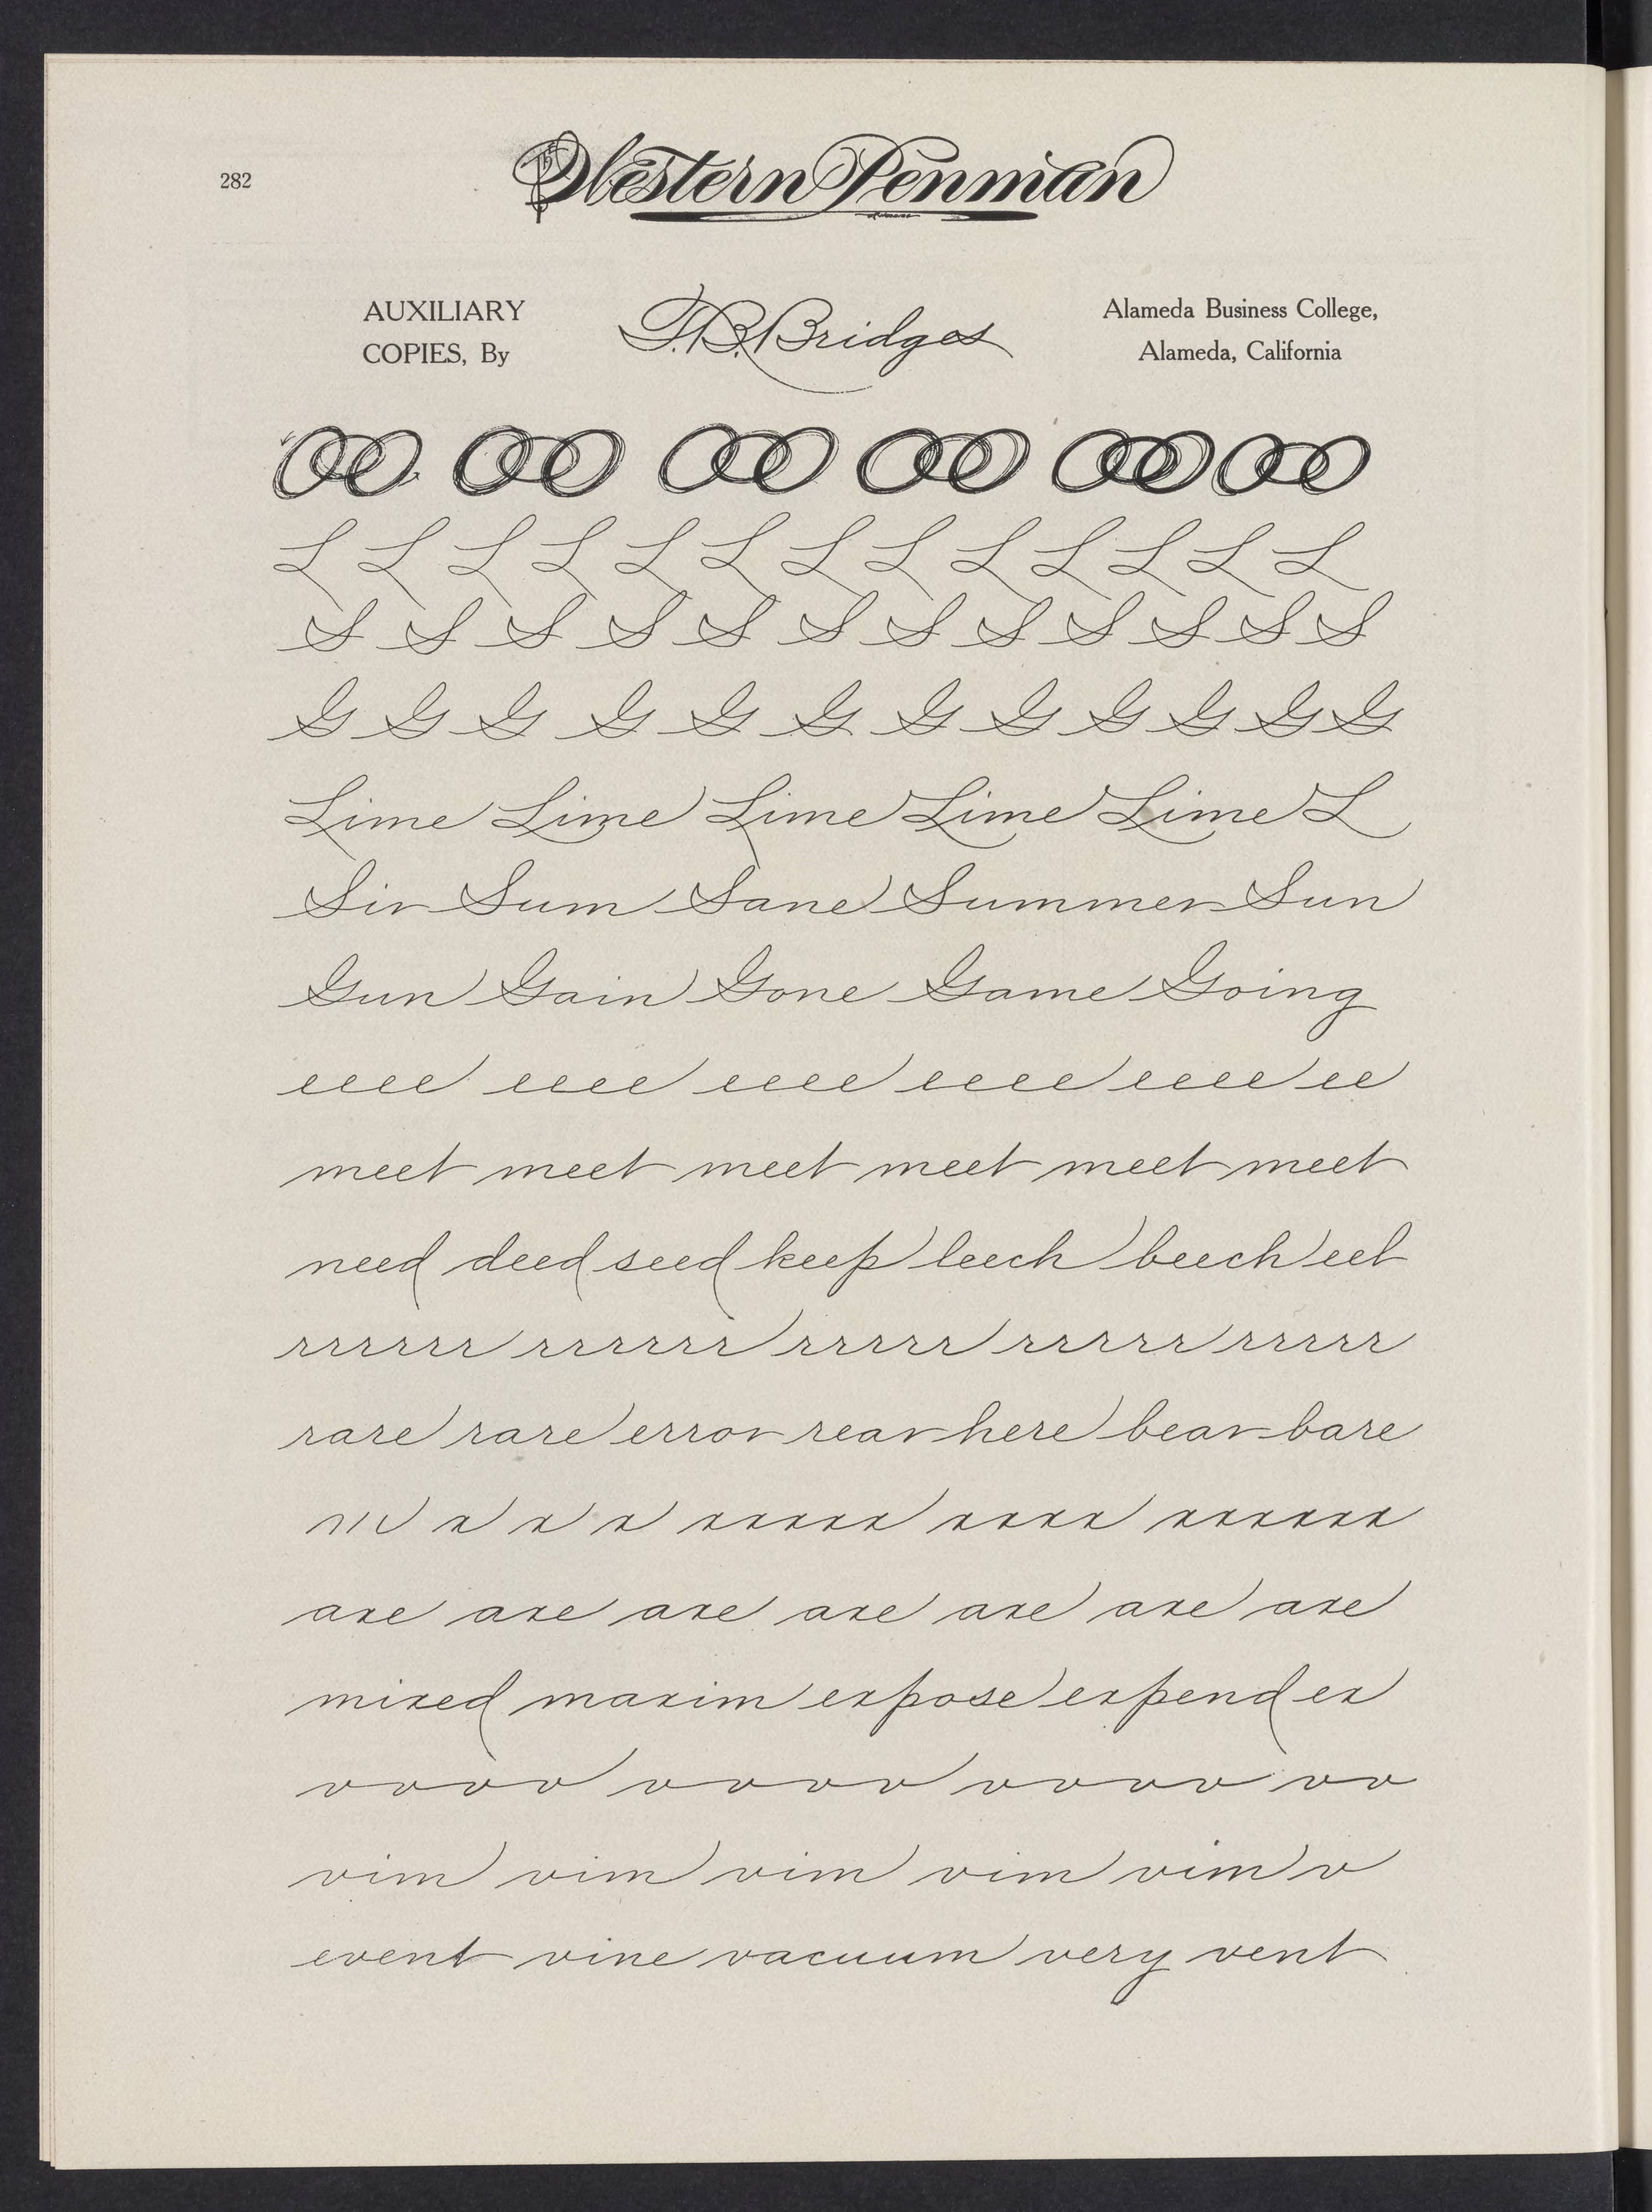 282
The Western Penman
AUXILIARY
COPIES, By
F.B. Bridges
Alameda Business College,
Alameda, California
L L L L L L L L L L L L L
S S S S S S S S S S S S
G G G G G G G G G G G G
Lime Lime Lime Lime Lime L
Sir Sum Sane Summer Sun
Gun Gain Gone Game Going
eeee eeee eeee eeee eeee ee
meet meet meet meet meet meet
need deed seed keep leech beech eel
rrrrrr rrrrrr rrrrr rrrrr rrrrr
rare rare error rear here bear bare
x x x xxxxx xxxx xxxxxx
axe axe axe axe axe axe axe
mixed maxim expose expend ex
vvvv vvvv vvvv vv
vim vim vim vim vim v
event vine vacuum very vent